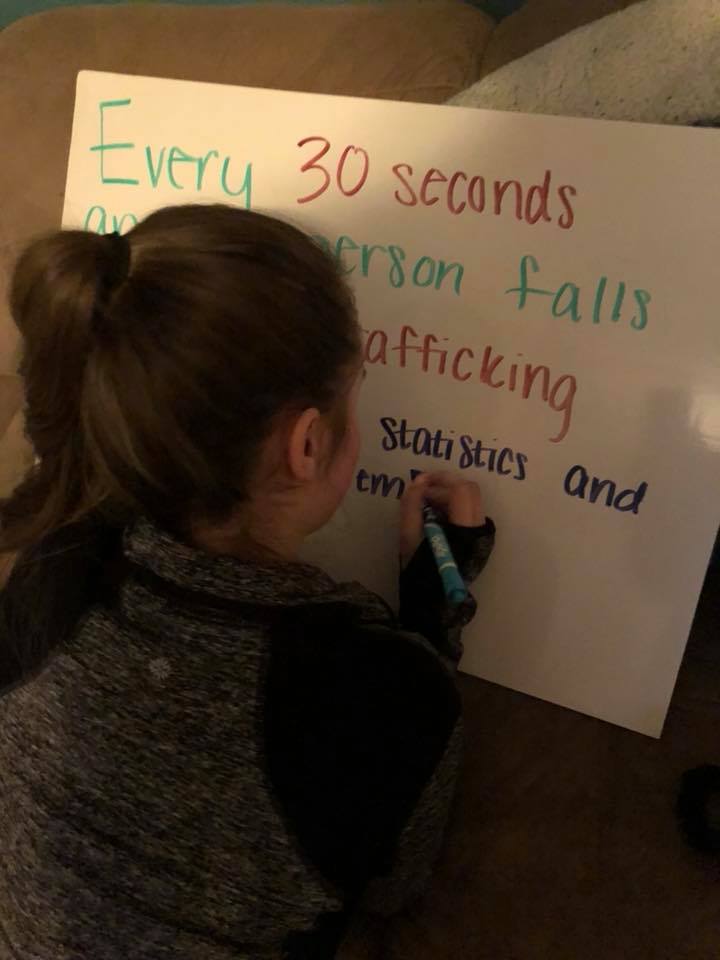 Every 30 seconds
person falls
trafficking
statistics and